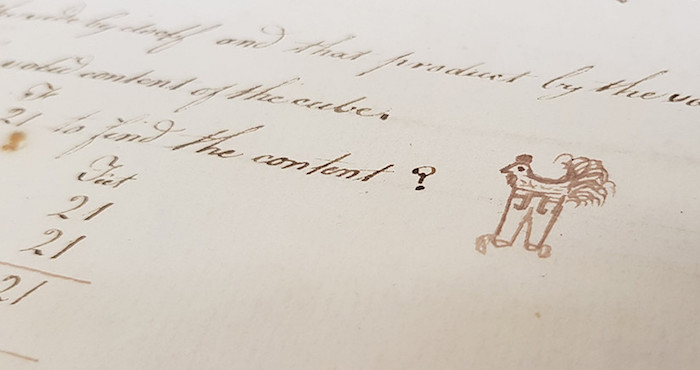 side by itself and that product by the
solid content of the cube.
Ft
21 to find the content ?
Feet
21
21
21